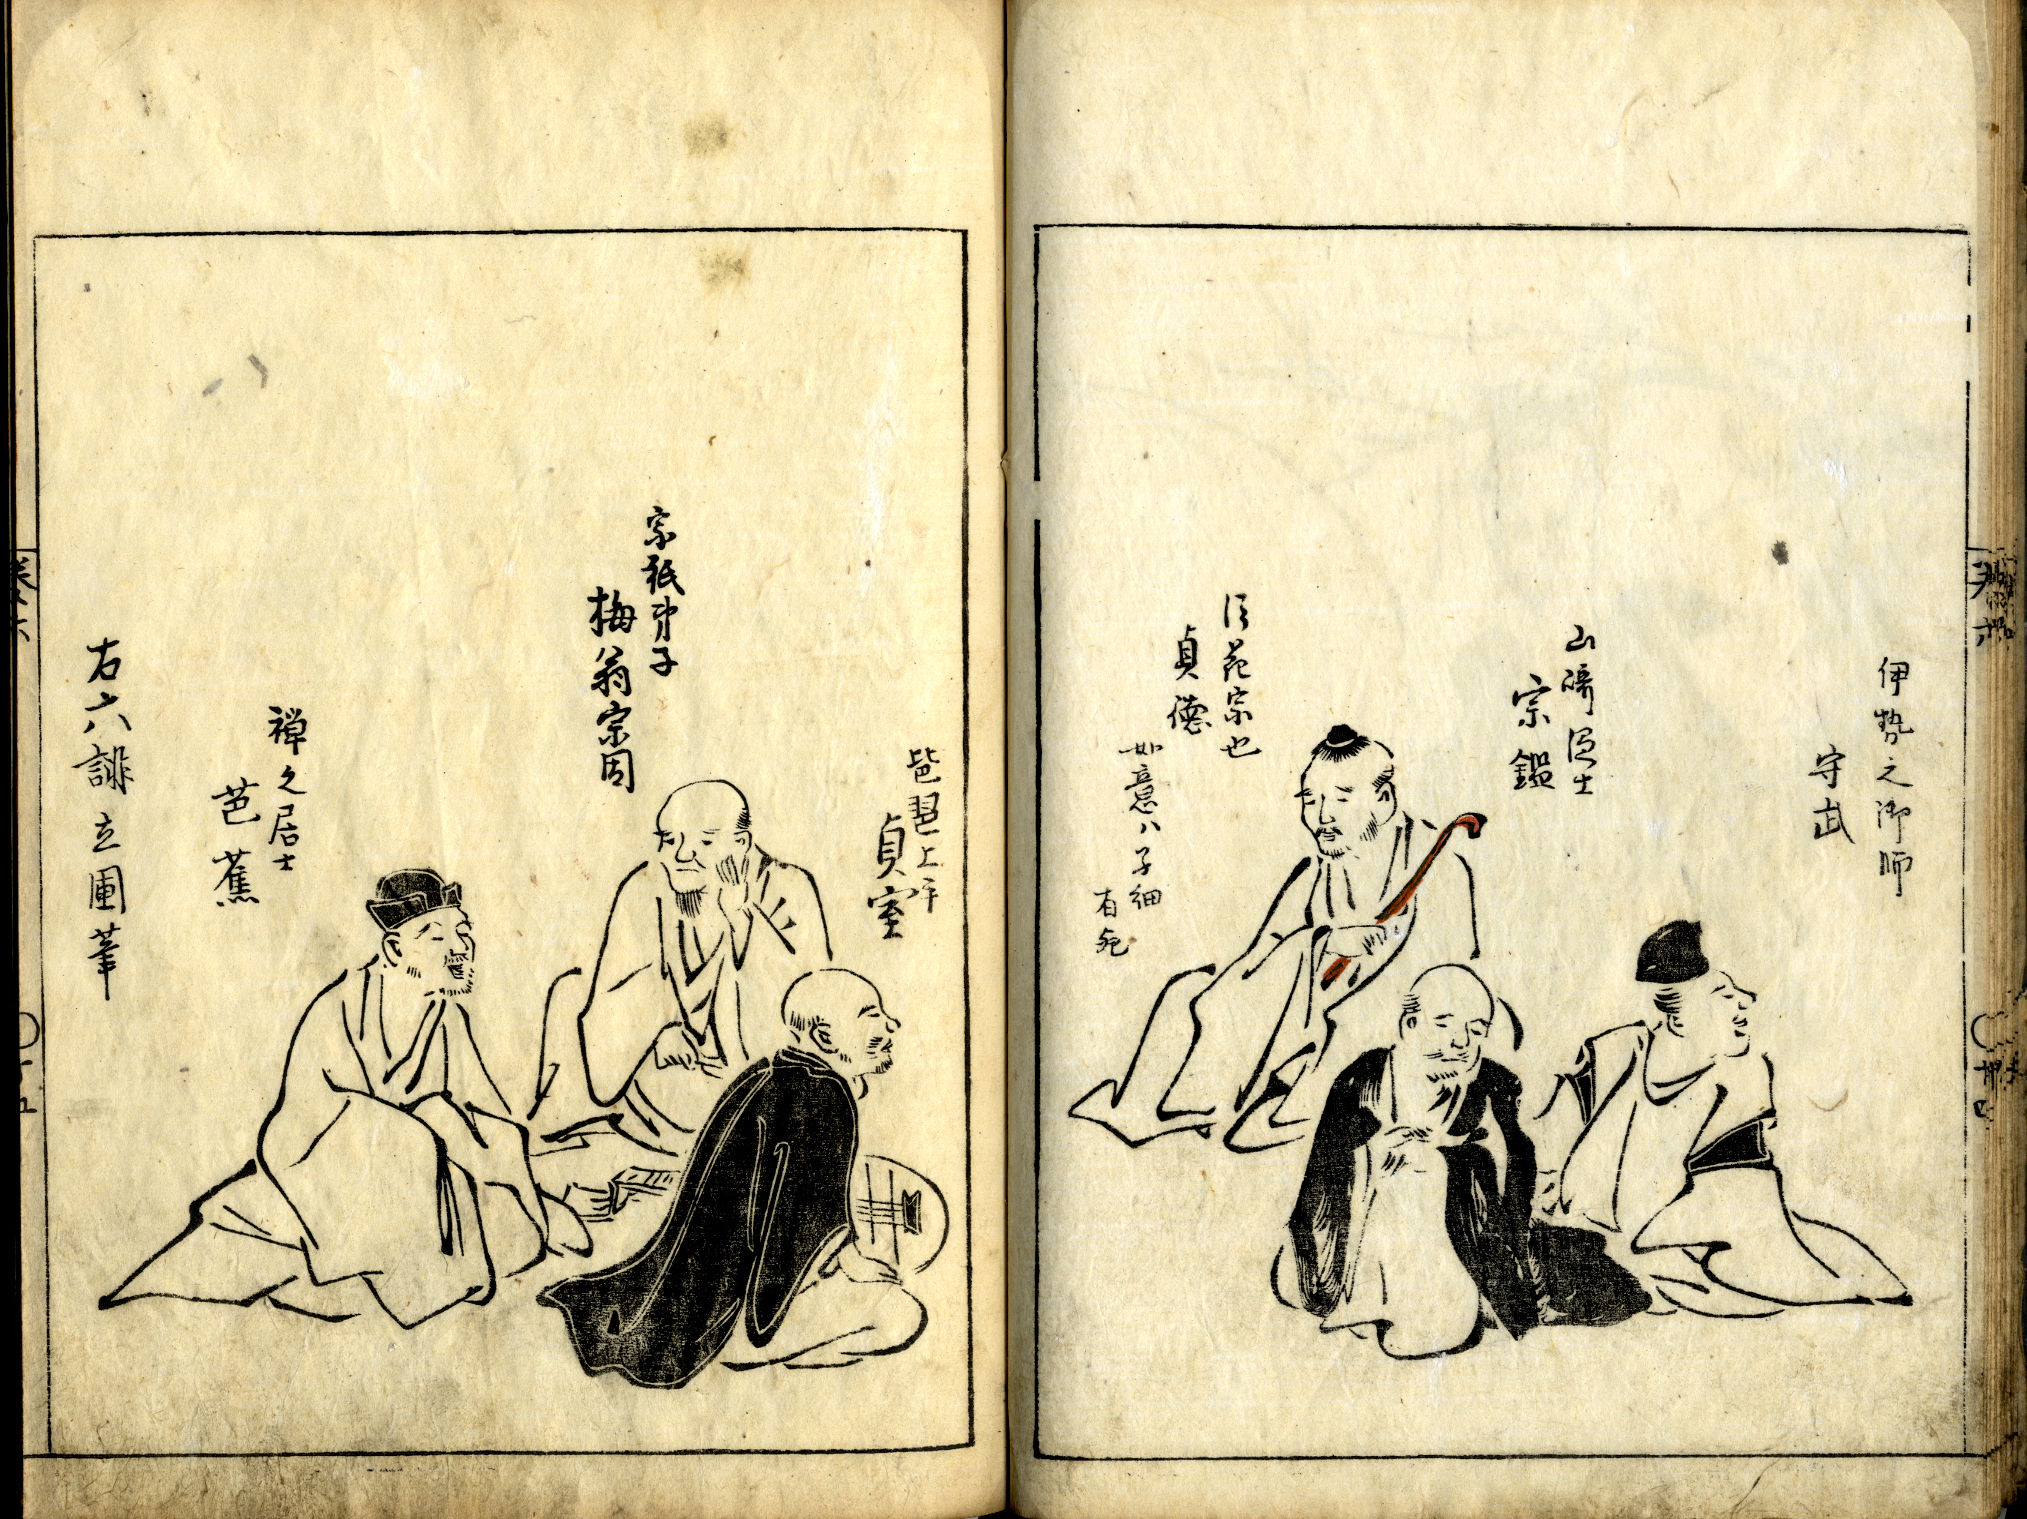 伊勢之御師
守武
山崎隠士
宗鑑
花宗也
貞徳
如意ハ子細
有
琵琶上手
貞室
宗祇弟子
梅翁宗因
禅之居士
芭蕉
右六誹立圃筆